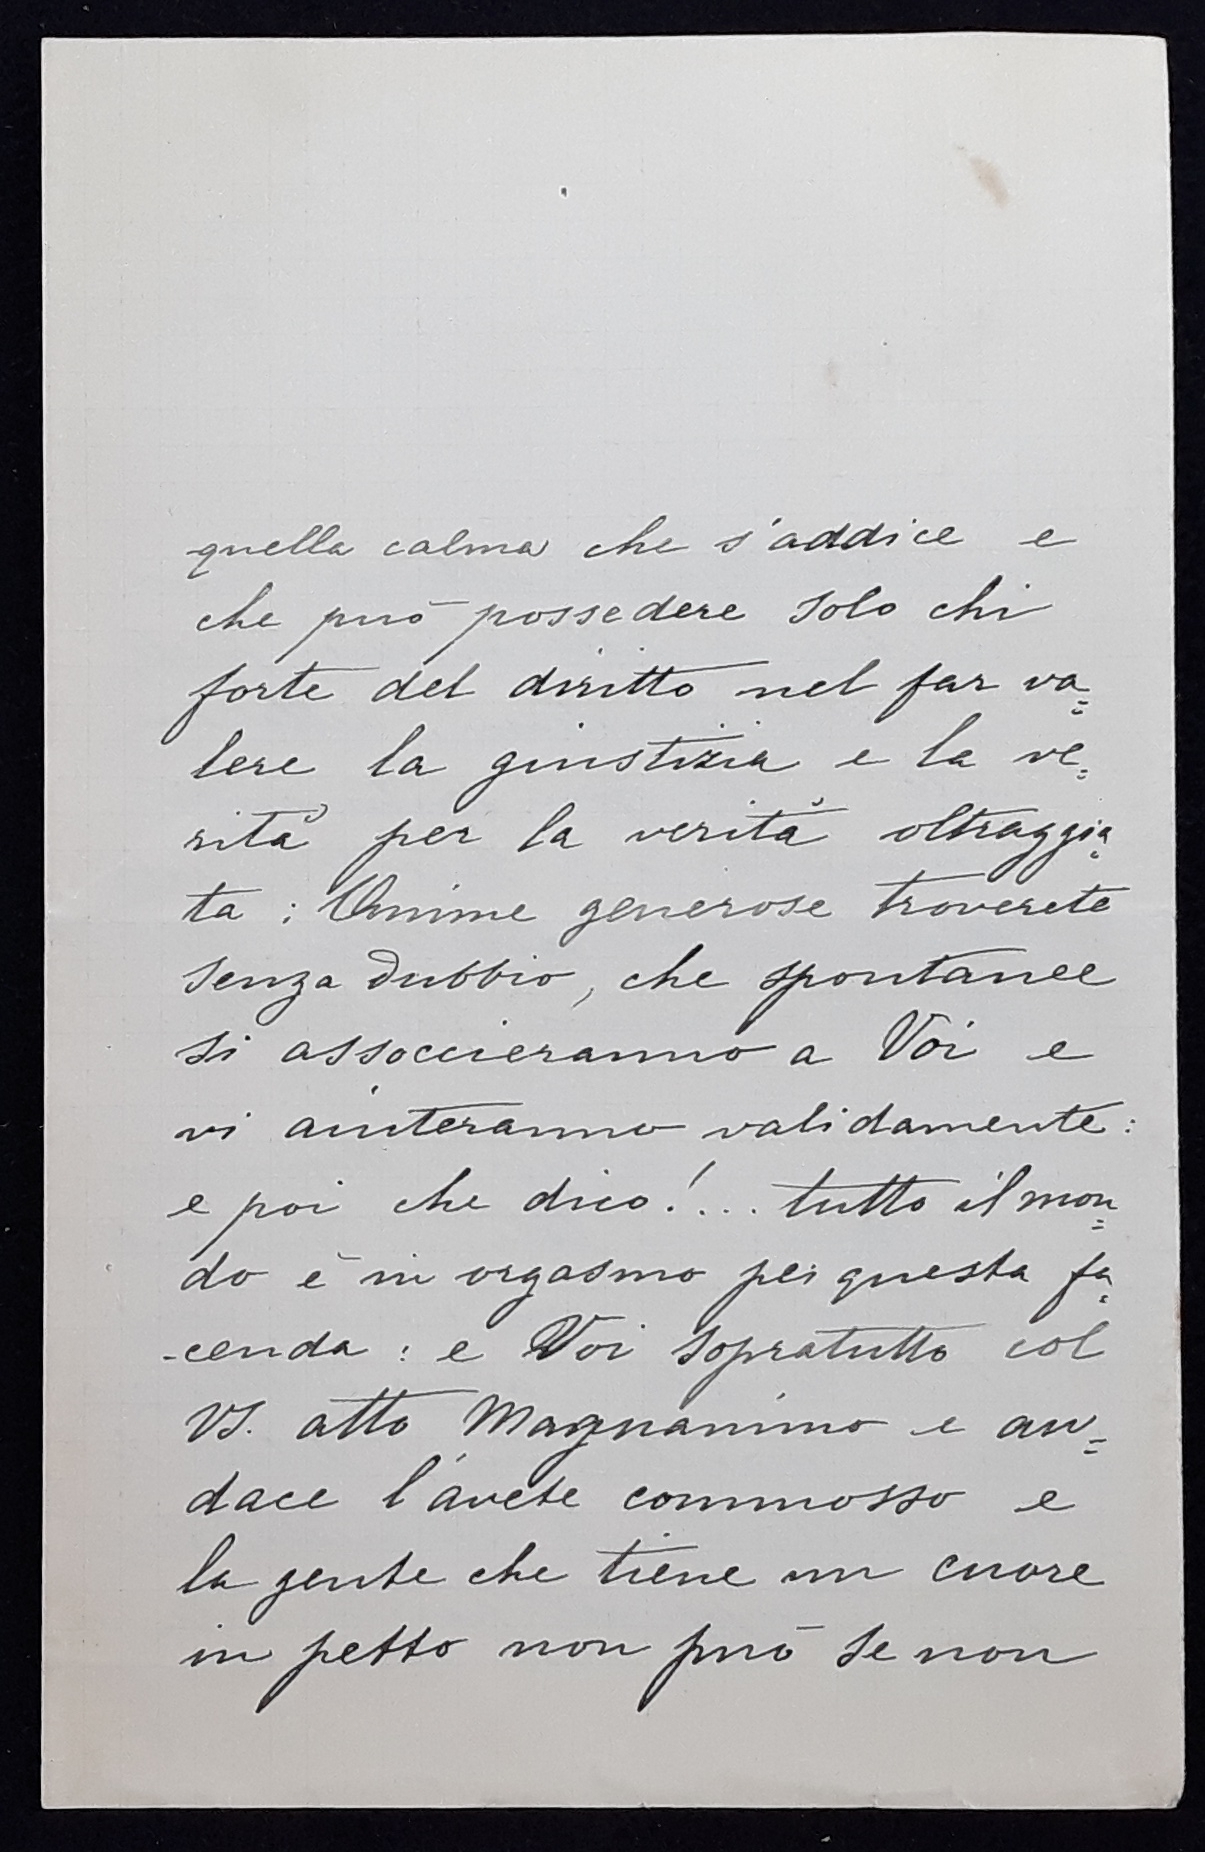 quella calma che s'addice e
che può possedere solo chi
forte del diritto nel far va=
lere la giustizia e la ve=
rità per la verità oltraggia=
ta : Anime generose troverete
senza dubbio, che spontanee
si associeranno a Voi e
vi aiuteranno validamente :
e poi che dico!... tutto il mon=
do è in orgasmo per questa fa=
-cenda : e Voi sopratutto col
VS. atto Magnanimo e au=
dace l'avete commosso e
la gente che tiene un cuore
in petto non può se non